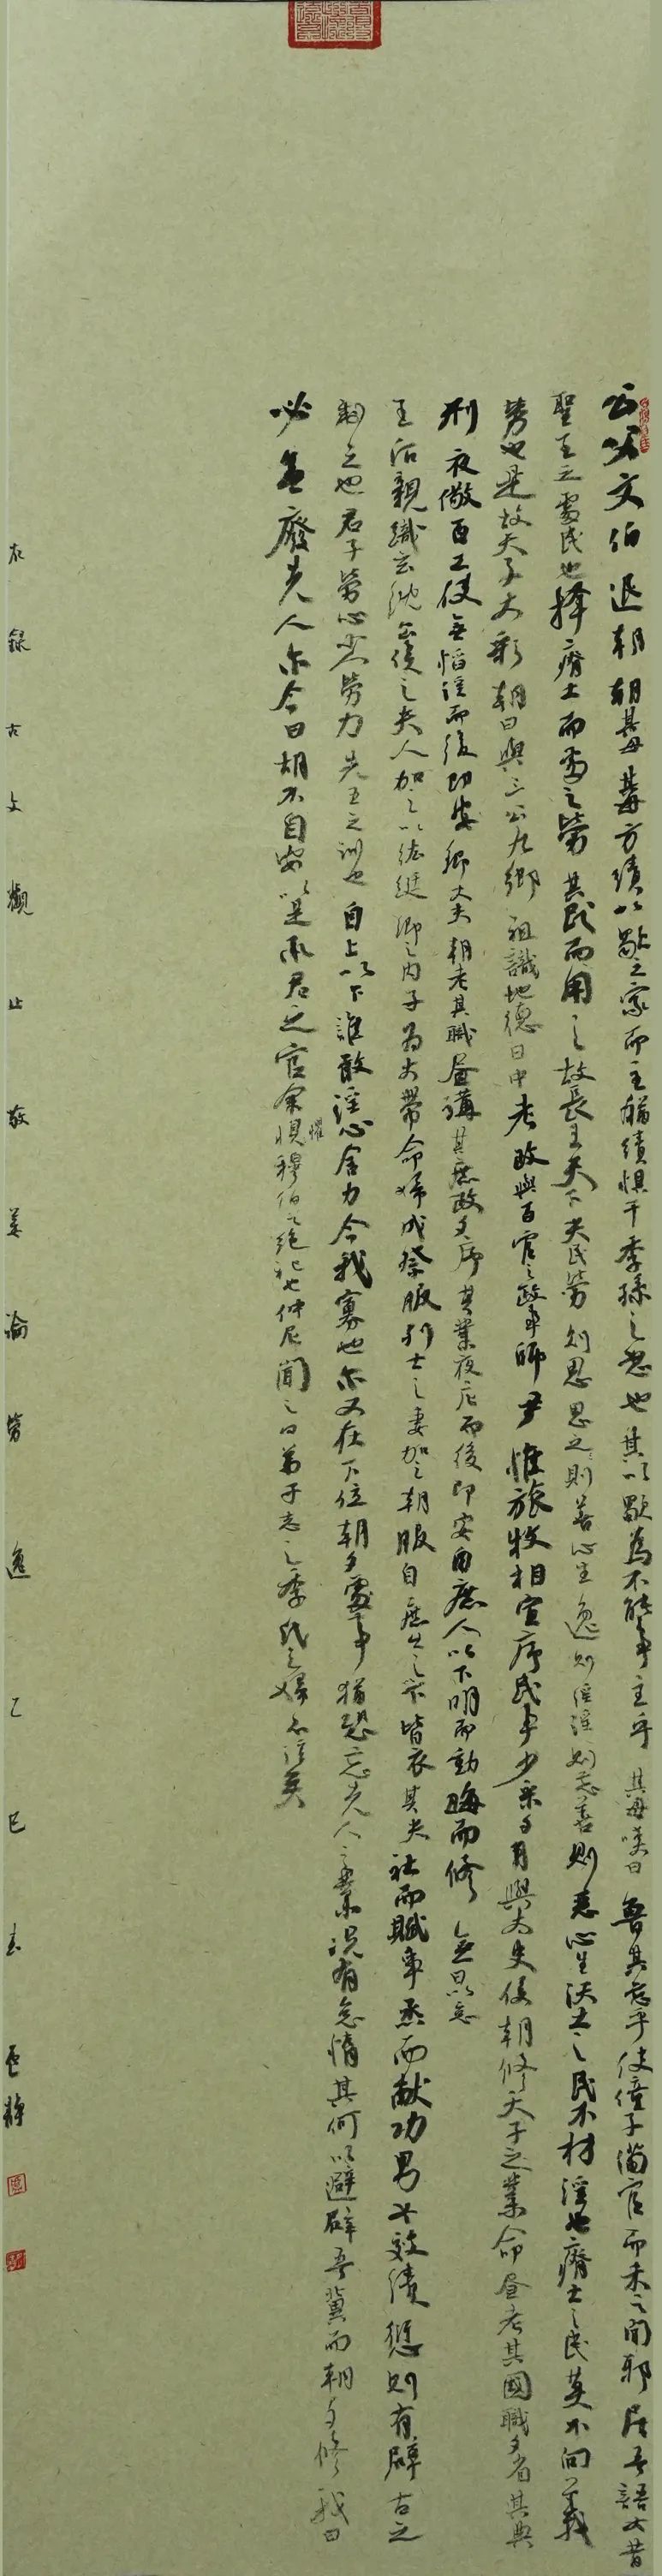 公父文伯退朝朝其母其母方績以歜之家而主猶績懼干季孫之怒也其以歜為不能事主乎其母嘆曰魯其亡乎使僮子備官而未之聞邪居吾語女昔
聖王之處民也擇瘠土而處之勞其民而用之故長王天下夫民勞則思思之則善心生逸則淫淫則忘善則惡心生沃土之民不材淫也瘠土之民莫不向義
勞也是故天子大彩朝日與三公九卿祖識地德日中考政與百官之政事師尹惟旅牧相宣序民事少采夕月與大史使朝修天子之業命晝考其國職夕省其典
刑夜儆百工使無慆淫而後即安卿大夫朝考其職晝講其庶政夕序其業夜庀而後即安自庶人以下明而動晦而修無日以怠
王后親織玄紞公侯之夫人加之以紘綖卿之內子為大帶命婦成祭服列士之妻加之朝服自庶士之下皆衣其夫社而賦事烝而献功男女效績愆則有辟古之
制之也君子勞心少人勞力先王之訓也自上以下誰敢淫心舍力今我寡也尔又在下位朝夕處事猶恐忘先人之業况有怠惰其何以避辟吾冀而朝夕修我曰
必無廢先人尔今曰胡不自安以是承君之官余惧穆伯之绝祀也仲尼聞之曰弟子志之季氏之婦不淫矣
懼
右錄古文觀止敬姜論勞逸乙巳